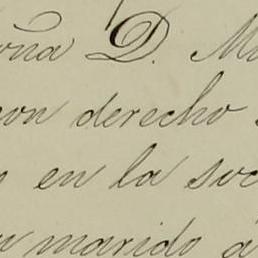 oña D. M
con derecho
en la soc
marido á